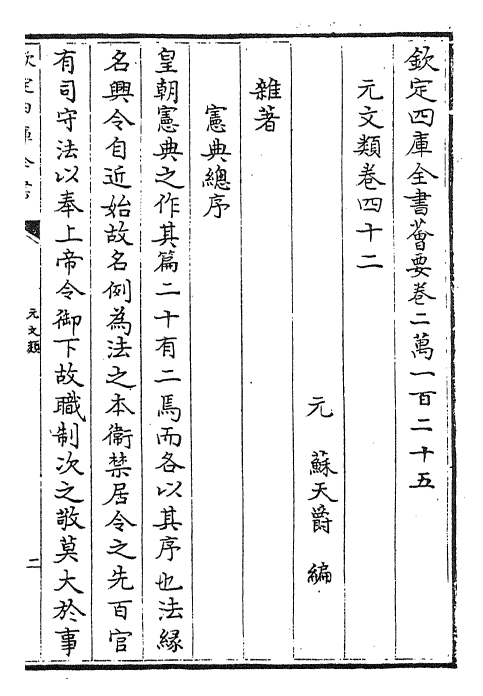 欽定四庫全書薈要卷二萬一百二十五
元文類卷四十二
元　蘇天爵　編
雜著
憲典總序
皇朝憲典之作其篇二十有二焉而各以其序也法緣
名興令自近始故名例為法之本衞禁居令之先百官
有司守法以奉上帝令御下故職制次之敬莫大於事
欽定四庫全書
元文類
二